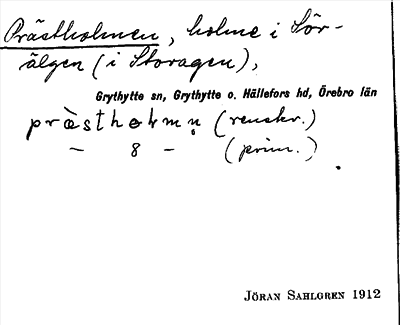 Prästholmen, holme i Sör-
älgen (i Storagen),
Grythytte sn, Grythytte o. Hällefors hd, Örebro län
prästhơlmn̥ (renskr.)
— 8 — (prim.)
JÖRAN SAHLGREN 1912